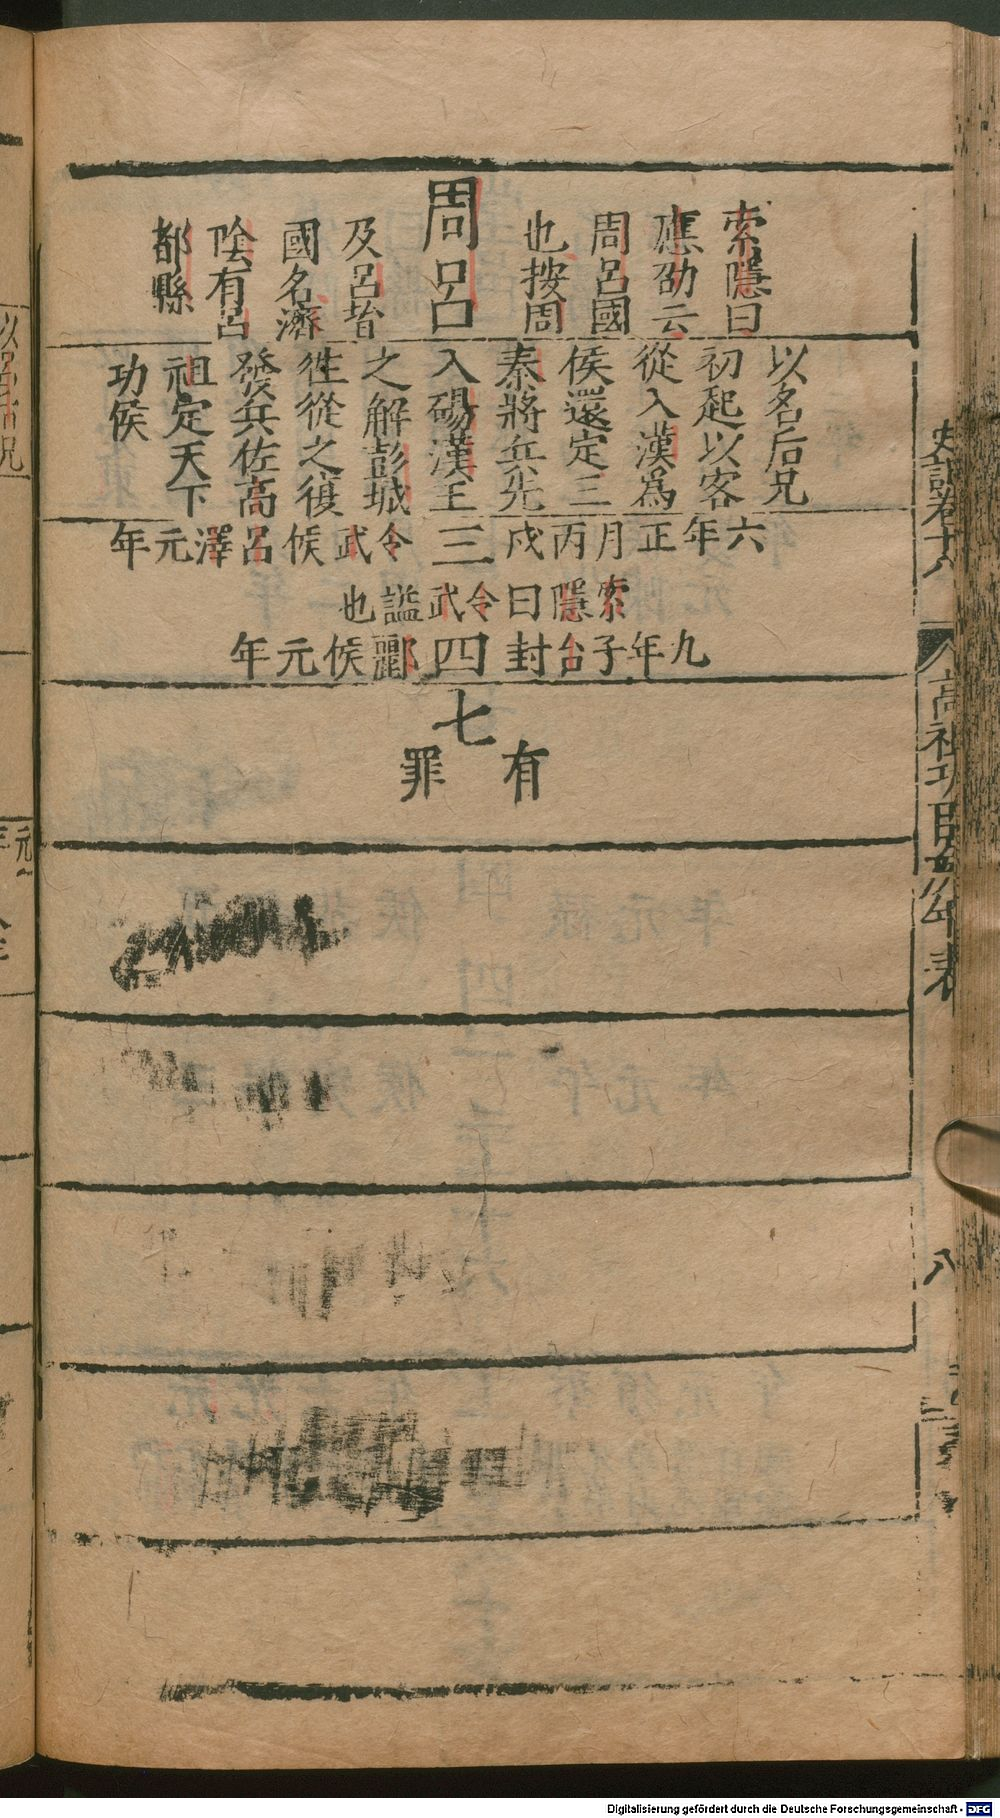 周呂
索隱曰
應劭云
周呂國
也按周
及呂皆
國名濟
陰有呂
都縣
以名后兄
初起以客
從入漢爲
侯還定三
秦將兵先
入碭漢王
之解彭城
徃從之復
發兵佐高
祖定天下
功侯
六年正月丙戍三令武侯呂澤元年
索隱曰令武謚也
九年子台封四酈侯元年
七
有罪
史記卷十八
高祖功臣年表
八
以呂后兄
元
Digitalisierung gefördert durch die Deutsche Forschungsgemeinschaft - DFG